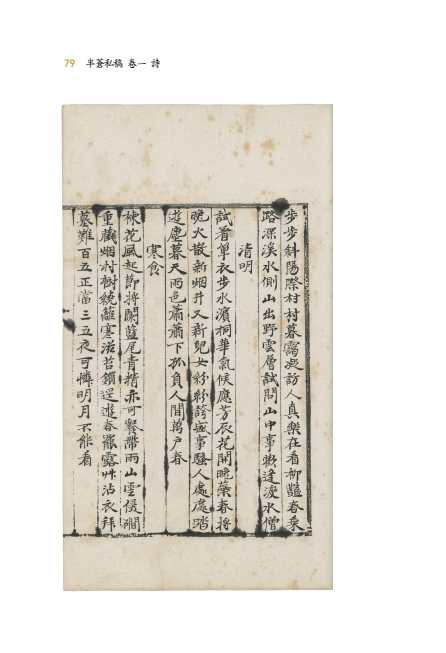 79 半蒼私稿 卷一 詩
步步斜陽際村村暮靄凝訪人真樂在看柳豔春乘
路深溪水側山出野雲層試問山中事歡逢渡水僧
清明
試着單衣步水濱桐華氣候應芳辰花開曉藥春將
晚火散新烟井又新兒女紛紛誇盛事騷人處處踏
遊塵暮天雨色蕭蕭下孤負人間萬戶春
寒食
楝花風起節將闌藍尾青精亦可餐帶雨山雲侵磵
重藏烟村樹繞籬寒滋苔鎖逕遊春罷露艸沾衣拜
墓難百五正當三五夜可憐明月不能看